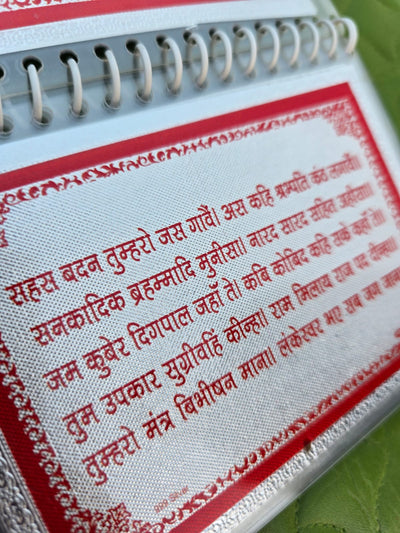 सहस बदन तुम्हरो जस गावैं। अस कहि श्रम्पति कंठ लगावैं।।
सनकादिक ब्रहम्मादि मुनीसा। नारद सारद सहित अहीसा।।
जम कुबेर दिगपाल जहाँ ते। कबि कोबिद कहि सके कहाँ ते।।
तुम उपकार सुग्रीवहिं कीन्हा। राम मिलाय राज पद दीन्हा।।
तुम्हरो मंत्र बिभीषन माना। लंकेस्वर भए सब जग जाना